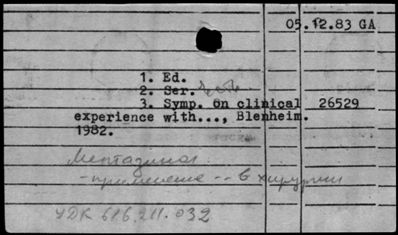 05.12.83 GA
1. Ed.
2. Ser.
3. Symp. on clinical 26529
experience with..., Blenheim.
1982.
- применение -- в хирургии
УДК 616.211.032